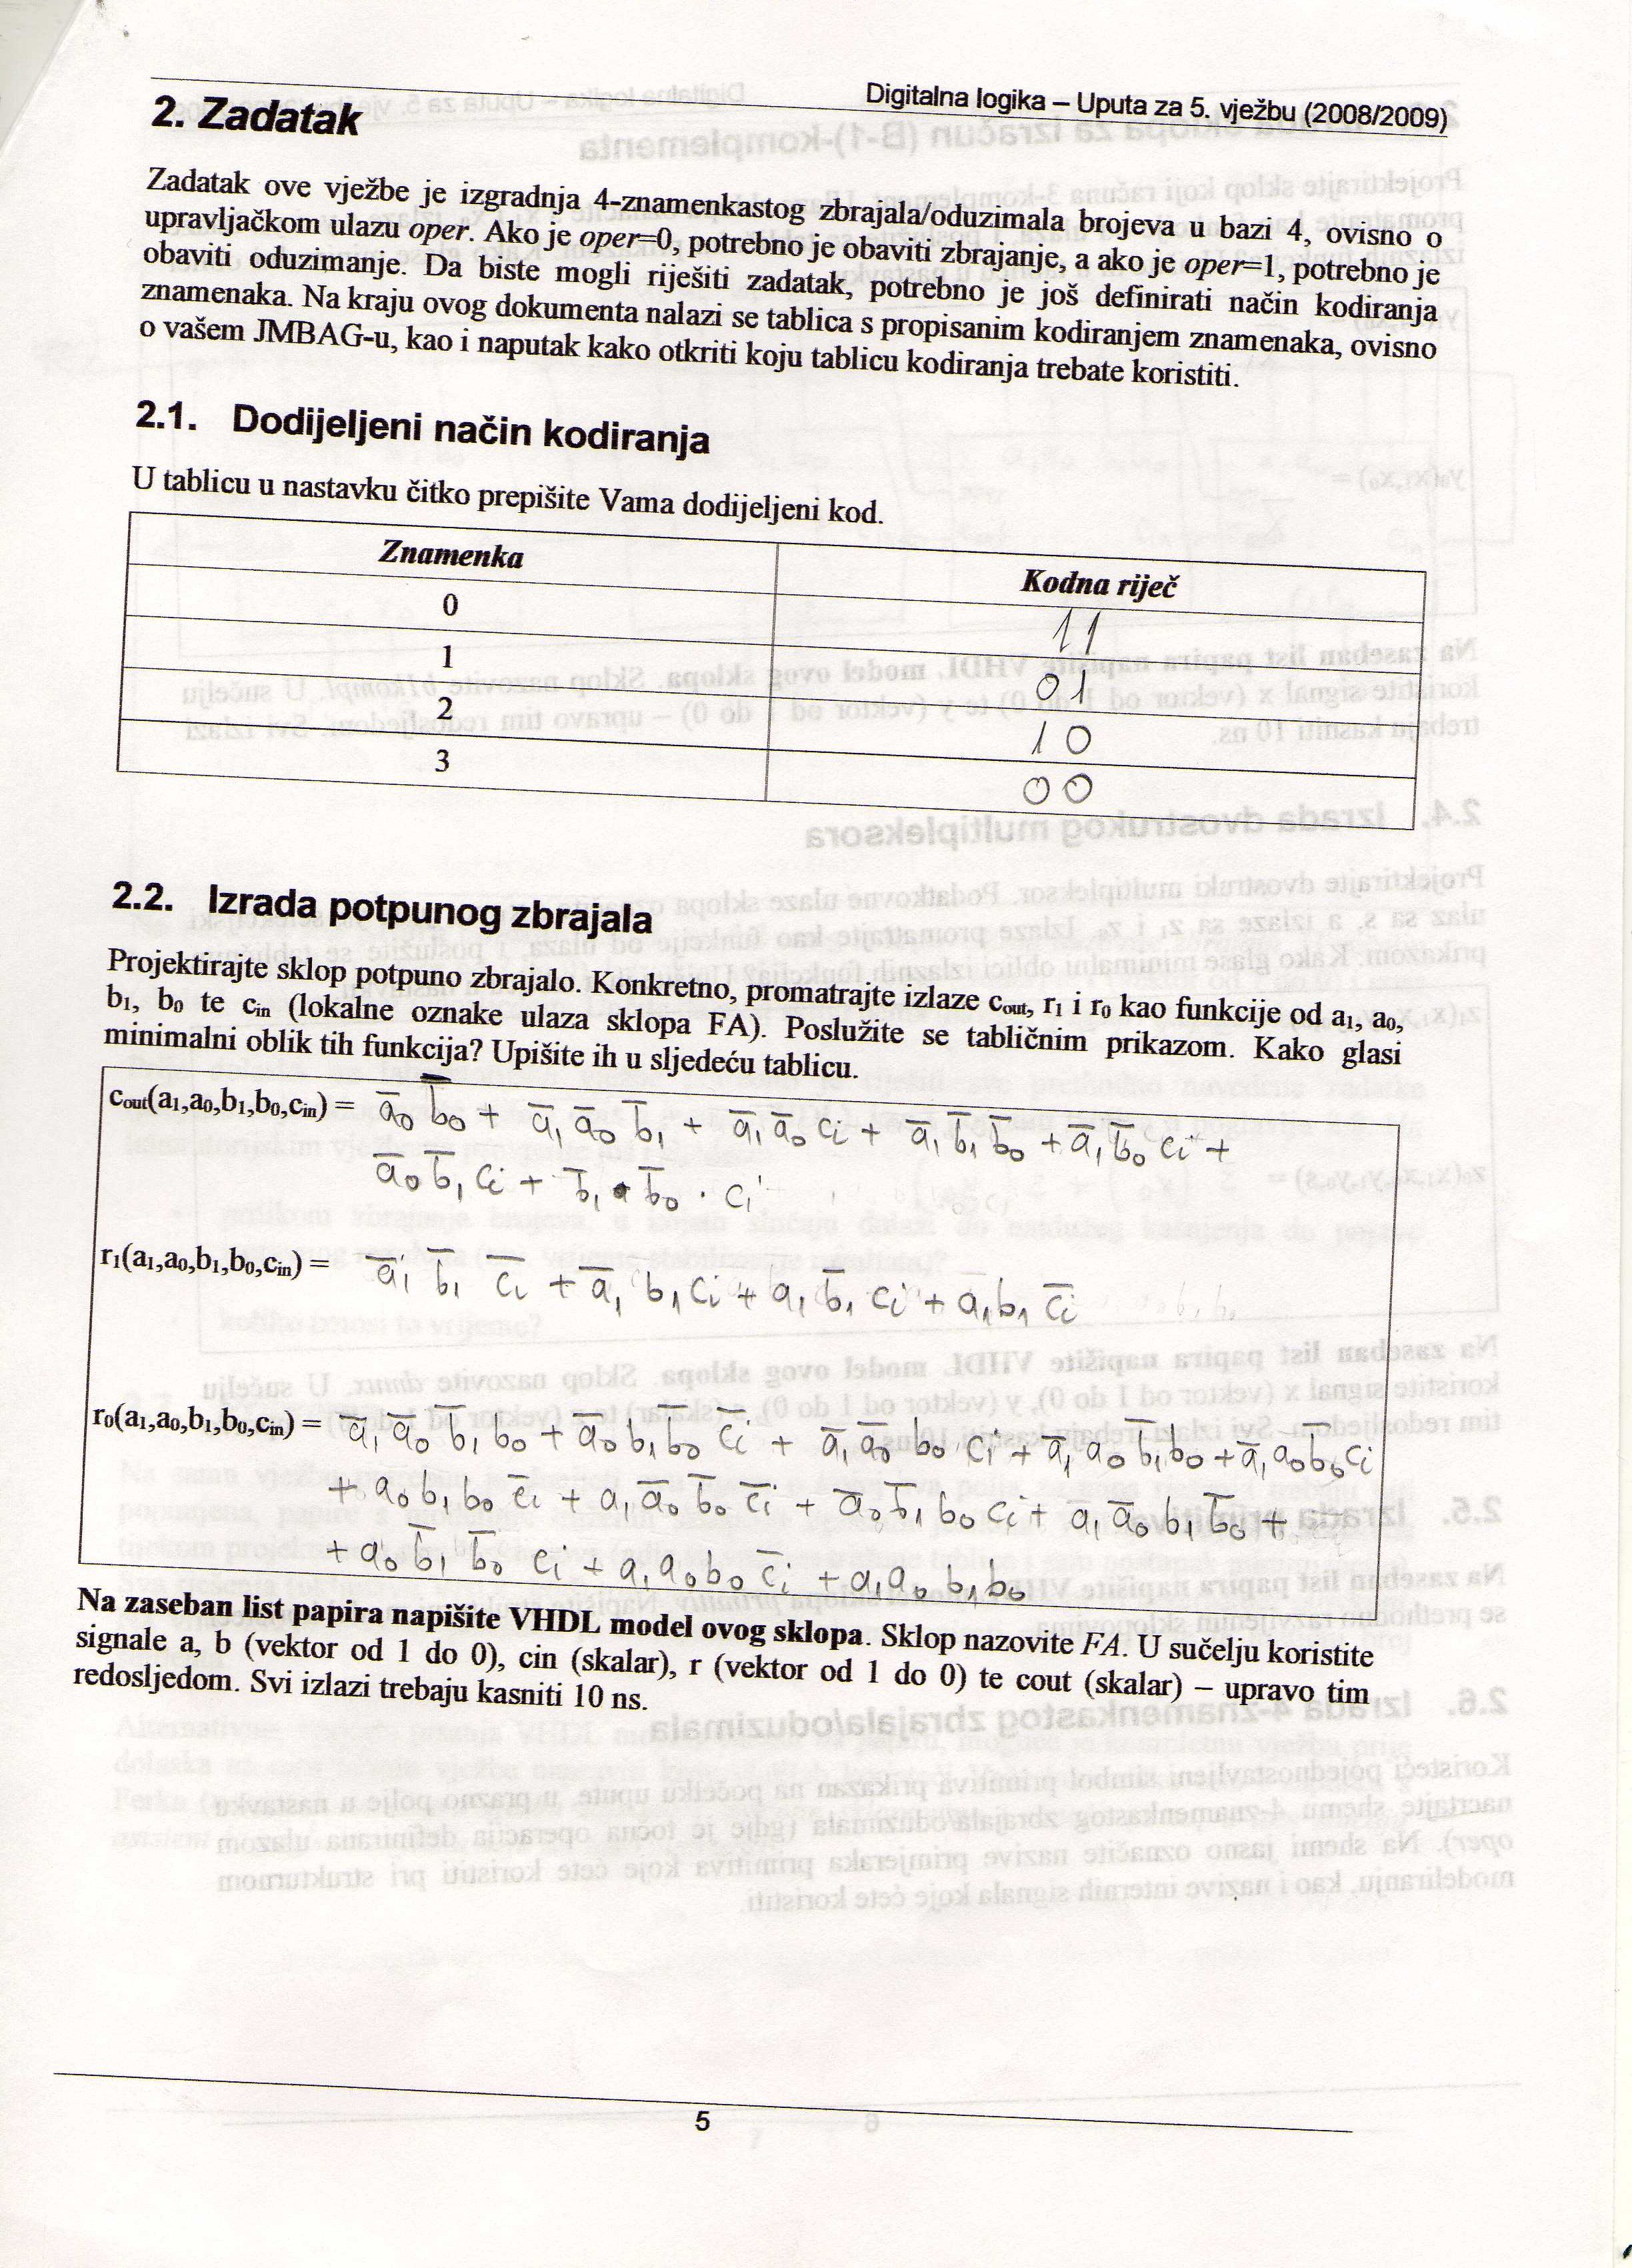 Digitalna logika – Uputa za 5. vježbu (2008/2009)
2. Zadatak
Zadatak ove vježbe je izgradnja 4-znamenkastog zbrajala/oduzimala brojeva u bazi 4, ovisno o
upravljačkom ulazu oper. Ako je oper=0, potrebno je obaviti zbrajanje, a ako je oper=1, potrebno je
obaviti oduzimanje. Da biste mogli riješiti zadatak, potrebno je još definirati način kodiranja
znamenaka. Na kraju ovog dokumenta nalazi se tablica s propisanim kodiranjem znamenaka, ovisno
o vašem JMBAG-u, kao i naputak kako otkriti koju tablicu kodiranja trebate koristiti.
2.1. Dodijeljeni način kodiranja
U tablicu u nastavku čitko prepišite Vama dodijeljeni kod.
Znamenka Kodna riječ
0 11
1 01
2 10
3 00
2.2. Izrada potpunog zbrajala
Projektirajte sklop potpuno zbrajalo. Konkretno, promatrajte izlaze cout, r1 i r0 kao funkcije od a1, a0,
b1, b0 te cin (lokalne oznake ulaza sklopa FA). Poslužite se tabličnim prikazom. Kako glasi
minimalni oblik tih funkcija? Upišite ih u sljedeću tablicu.
cout(a1,a0,b1,b0,cin) = a̅0 b̅0 + a̅1 a̅0 b̅1 + a̅1 a̅0 ci + a̅1 b̅1 b̅0 + a̅1 b̅0 ci +
a̅0 b̅1 ci + b̅1 · b̅0 · ci
r1(a1,a0,b1,b0,cin) = a̅1 b̅1 c̅i + a̅1 b1 ci + a1 b̅1 ci + a1 b1 c̅i
r0(a1,a0,b1,b0,cin) = a̅1 a̅0 b̅1 b0 + a̅0 b1 b̅0 c̅i + a̅1 a̅0 b0 ci + a̅1 a0 b̅1 b̅0 + a̅1 a0 b̅0 ci
+ a0 b1 b0 c̅i + a1 a̅0 b̅0 c̅i + a̅0 b̅1 b0 ci + a1 a̅0 b1 b̅0 +
+ a0 b̅1 b̅0 ci + a1 a0 b0 c̅i + a1 a0 b1 b0
Na zaseban list papira napišite VHDL model ovog sklopa. Sklop nazovite FA. U sučelju koristite
signale a, b (vektor od 1 do 0), cin (skalar), r (vektor od 1 do 0) te cout (skalar) – upravo tim
redosljedom. Svi izlazi trebaju kasniti 10 ns.
5